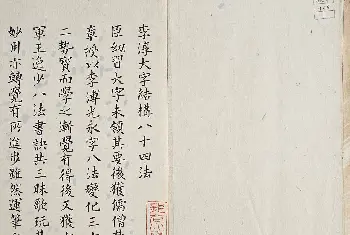 李淳大字結構八十四法
臣幼習大字未領其要後獲儒僧
章授以李溥光永字八法變化三十
二勢寶而學之漸覺有得後又獲
軍王逸少八法書訣共三昧歌玩其
妙用亦轉覺有所進焉雖然運筆